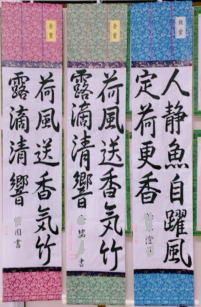 人静魚自躍風
定荷更香
金賞
荷風送香気竹
露滴清響
書
金賞
荷風送香気竹
露滴清響
書